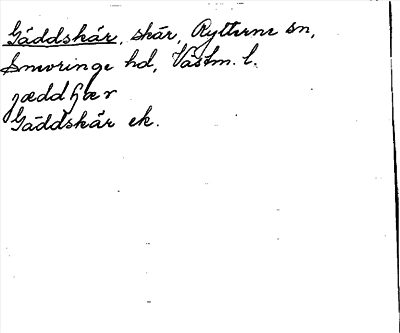 Gäddskär, skär, Rytterne sn,
Snevringe hd, Västm. l.
jæddʃær
Gäddskär ek.